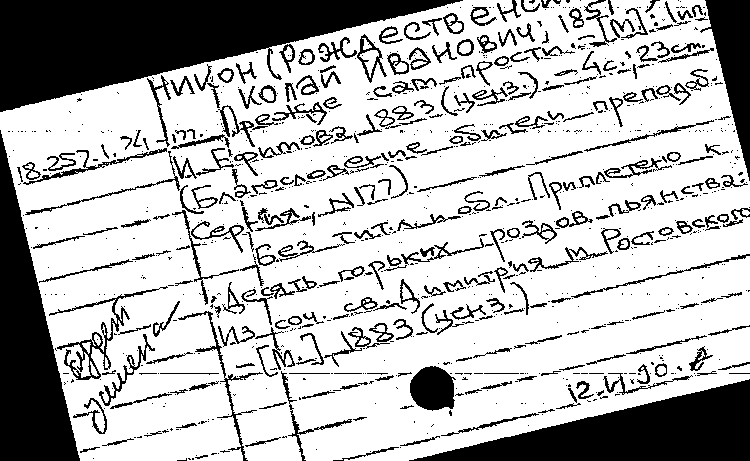 Никон (Рождественск
колай Иванович; 185
18.257.1.74-m. Прежде сам прости. - [М]: Тип.
И. Ефимова, 1883 (ценз.) - 4с.; 23см
(Благословение обители преподоб.
Сергия; N177).
Без тит.л. и обл. Приплетено к
:Десять горьких гроздов пьянства:
Из соч. св. Димитрия м Ростовского
- [М.], 1883 (ценз.)
Будет
замена
12.VI.90.